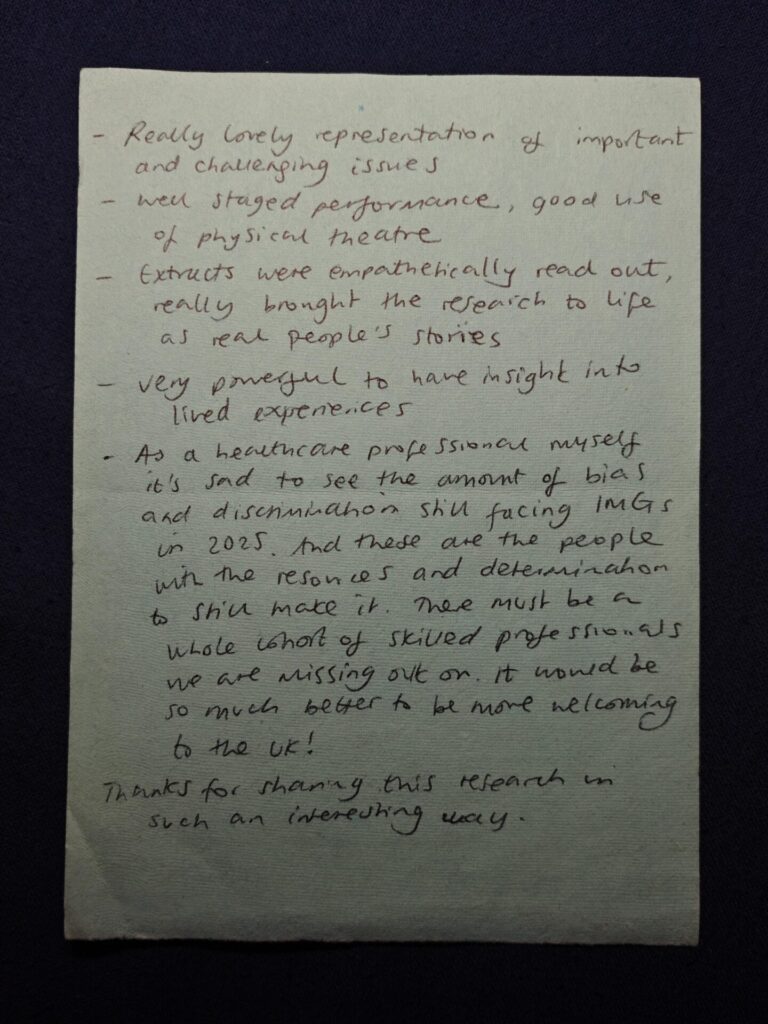 - Really lovely representation of important
and challenging issues
- Well staged performance, good use
of physical theatre
- Extracts were empathetically read out,
really brought the research to life
as real people's stories
- Very powerful to have insight into
lived experiences
- As a healthcare professional myself
it's sad to see the amount of bias
and discrimination still facing IMGs
in 2025. And these are the people
with the resources and determination
to still make it. There must be a
whole cohort of skilled professionals
we are missing out on. It would be
so much better to be more welcoming
to the UK!
Thanks for sharing this research in
such an interesting way.